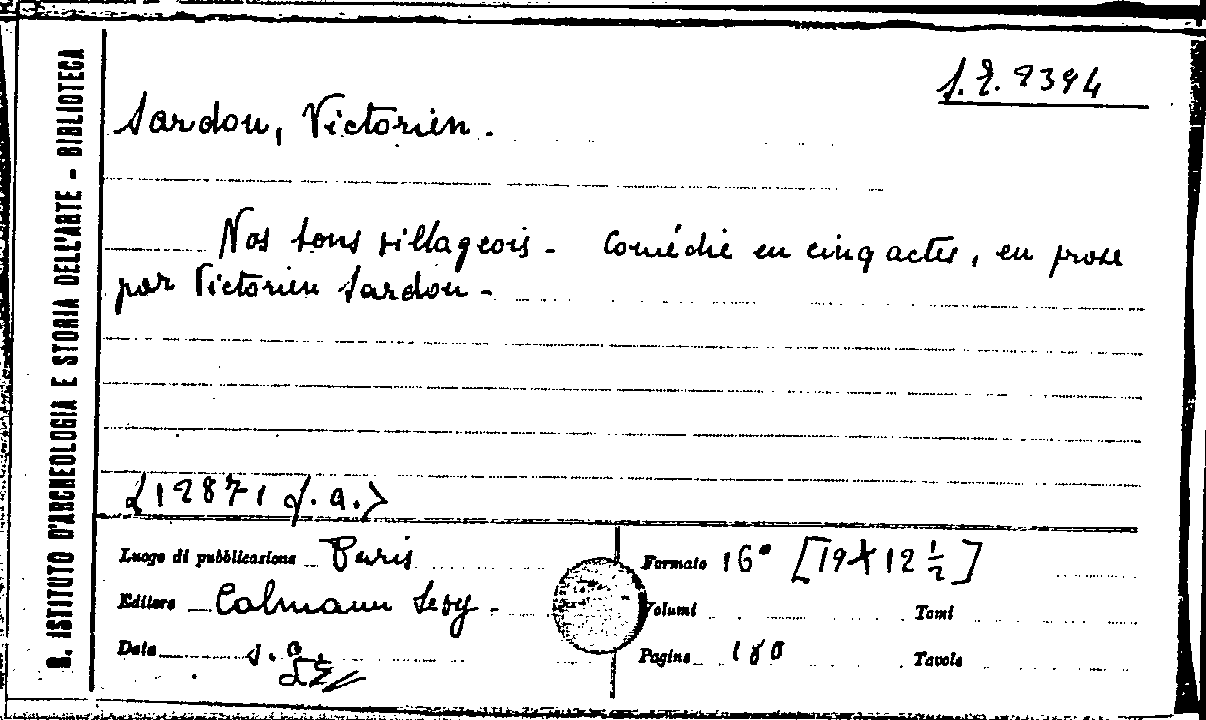 R. ISTITUTO D'ARCHEOLOGIA E STORIA DELL'ARTE - BIBLIOTECA
Sardou, Victorien.
Nos bons villageois - Comédie en cinq actes, en prose
par Victorien Sardou -
Luogo di pubblicazione Paris
Formato 16° [19 X 12 ½]
Editore Calmann Levy -
Volumi Tomi
Data s. a.
Pagine 180 Tavole